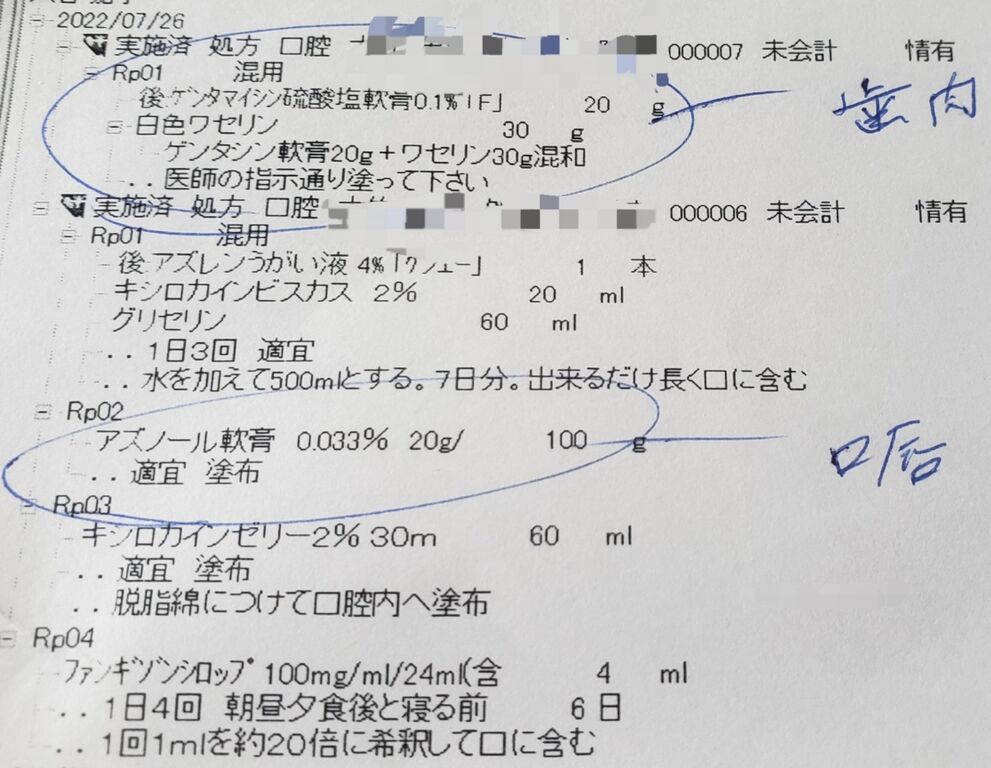 2022/07/26
実施済 処方 口腔 000007 未会計 情有
Rp01 混用
後:ゲンタマイシン硫酸塩軟膏0.1%「F」 20 g
歯肉
白色ワセリン 30 g
ゲンタシン軟膏20g＋ワセリン30g混和
..医師の指示通り塗って下さい
実施済 処方 口腔 000006 未会計 情有
Rp01 混用
後:アズレンうがい液 4% 1 本
キシロカインビスカス 2% 20 ml
グリセリン 60 ml
..1日3回 適宜
..水を加えて500mlとする。7日分。出来るだけ長く口に含む
Rp02
アズノール軟膏 0.033% 20g/ 100 g
口唇
..適宜 塗布
Rp03
キシロカインゼリー2% 30m 60 ml
..適宜 塗布
..脱脂綿につけて口腔内へ塗布
Rp04
ファンギゾンシロップ 100mg/ml/24ml(含 4 ml
..1日4回 朝昼夕食後と寝る前 6 日
..1回1mlを約20倍に希釈して口に含む